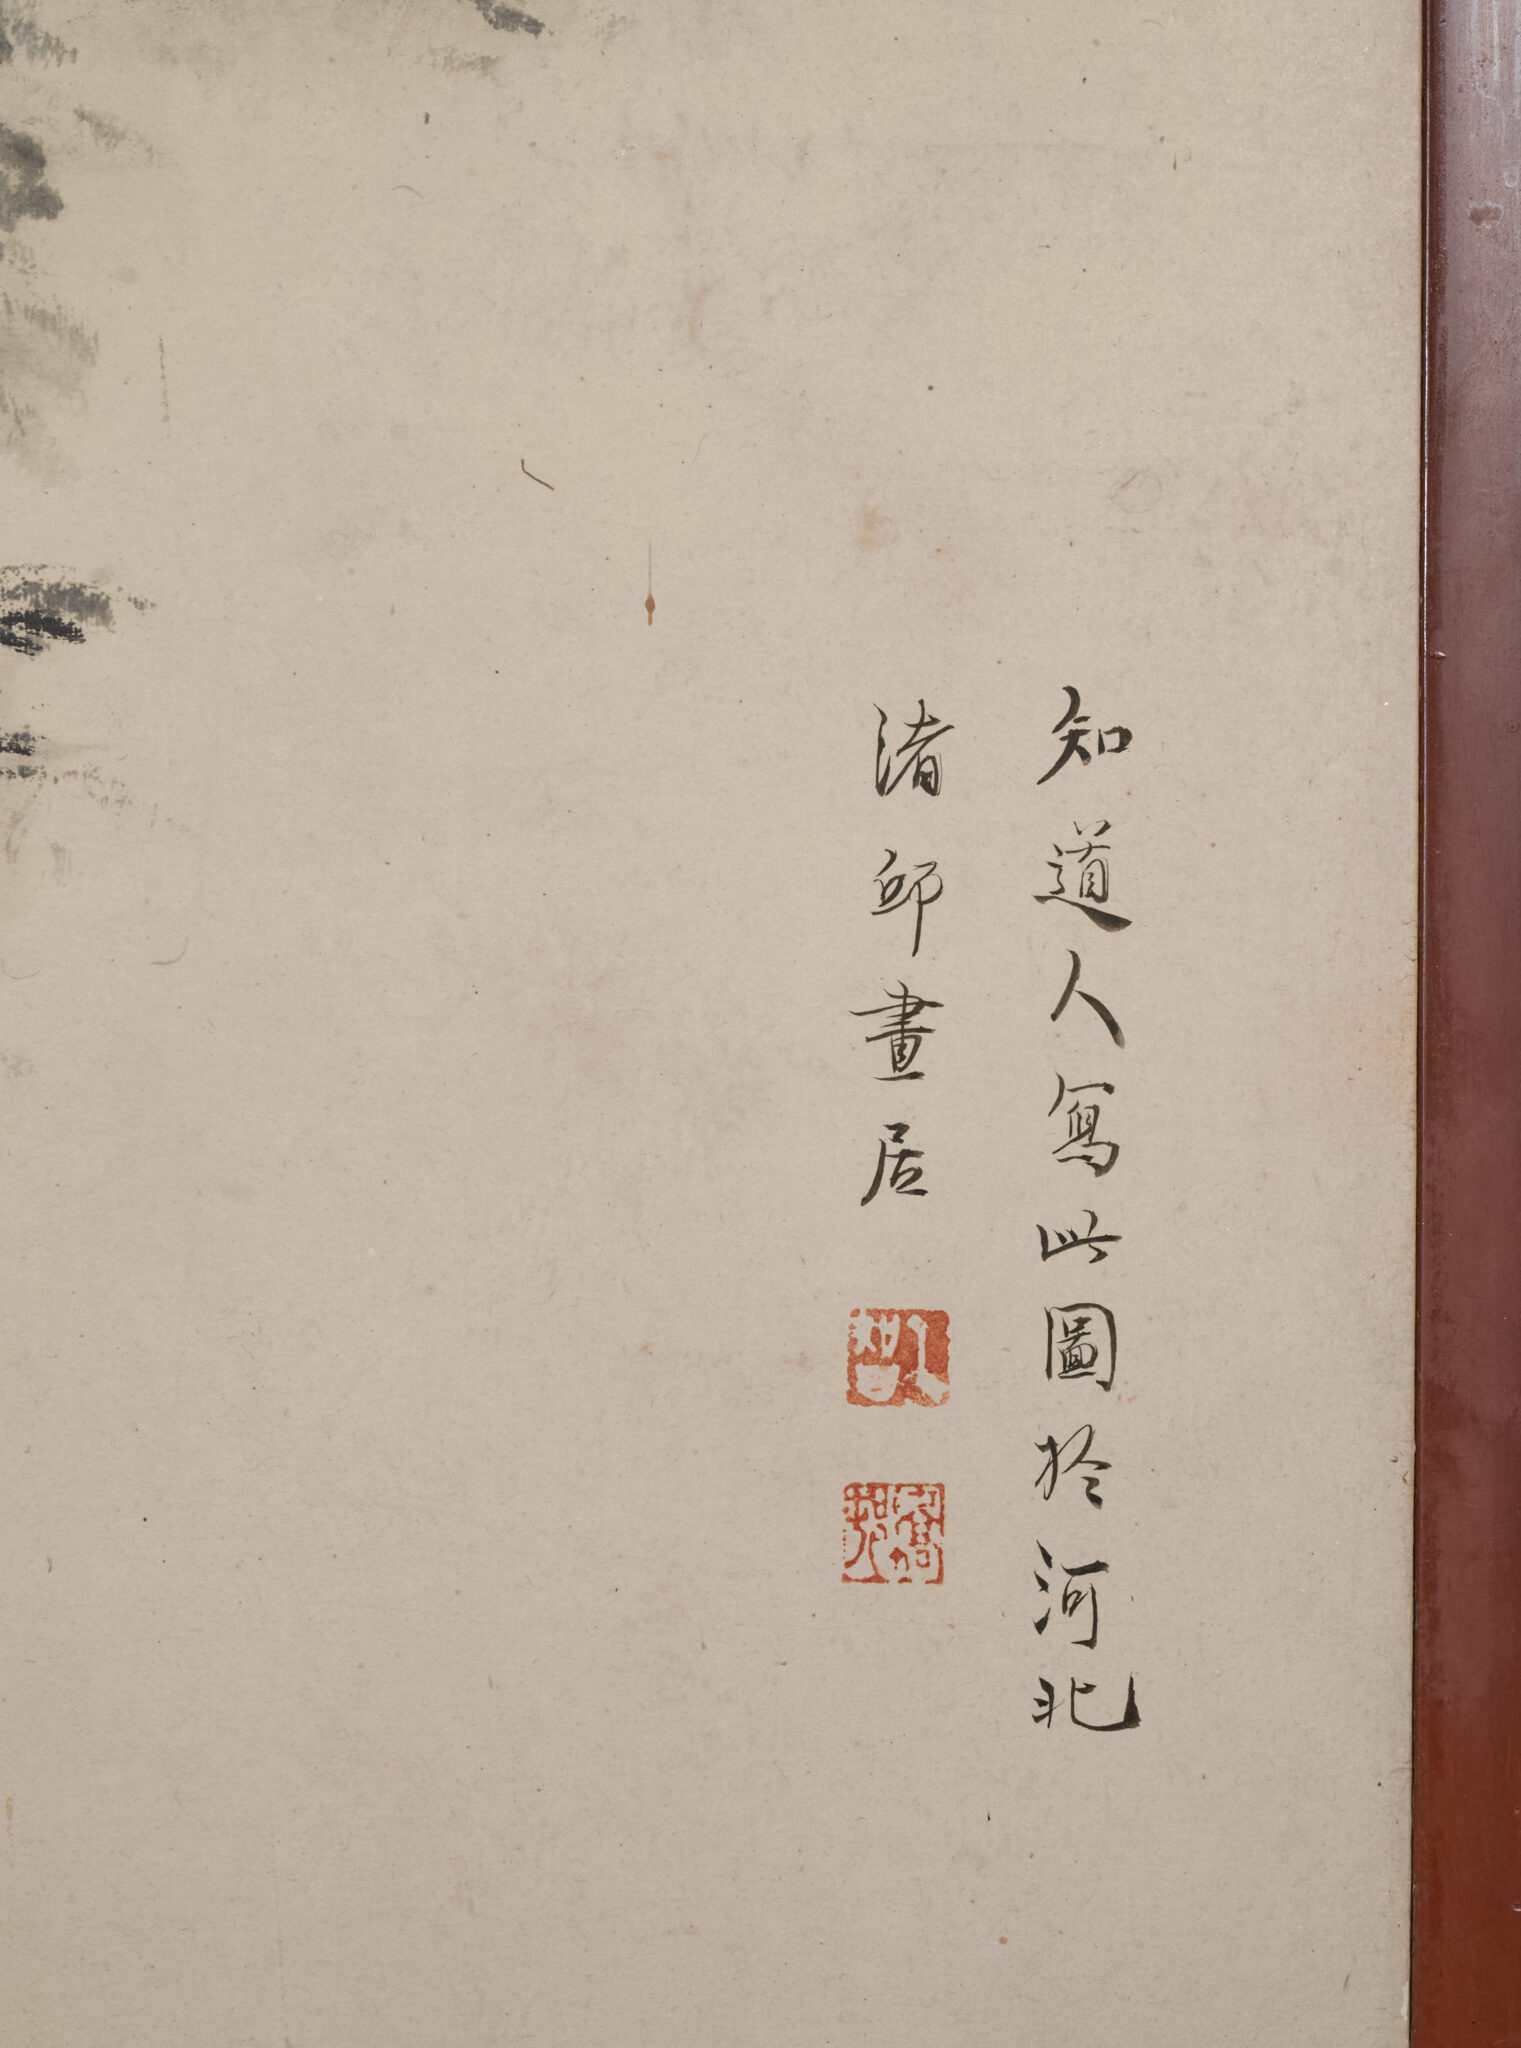 知道人寫此圖於河北
渚邱畫居